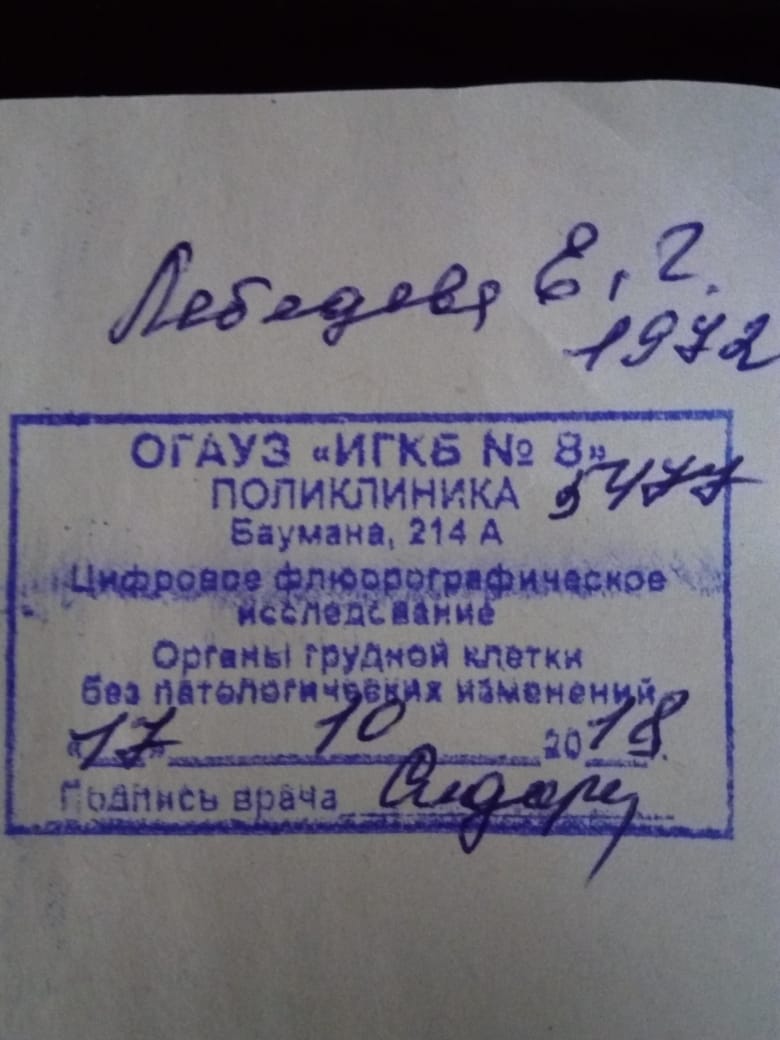 Лебедева Е. Г.
1972
ОГАУЗ «ИГКБ № 8»
ПОЛИКЛИНИКА 5477
Баумана, 214 А
Цифровое флюорографическое
исследование
Органы грудной клетки
без патологических изменений
«17» 10 2018.
Подпись врача